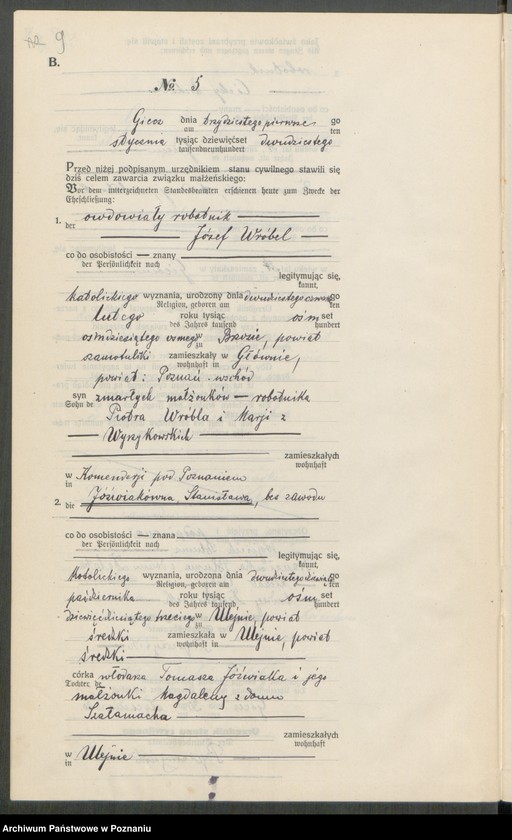 9
B.
№ 5
Giecz dnia trzydziestego pierwszego
am ten
stycznia tysiąc dziewięćset dwudziestego
tausendneunhundert
Przed niżej podpisanym urzędnikiem stanu cywilnego stawili się
dziś celem zawarcia związku małżeńskiego:
Vor dem unterzeichneten Standesbeamten erschienen heute zum Zwecke der
Eheschließung:
1. owdowiały robotnik
der
Józef Wróbel
co do osobistości — znany
der Persönlichkeit nach
legitymując się,
kannt,
katolickiego wyznania, urodzony dnia dwudziestego go
Religion, geboren am ten
lutego roku tysiąc ośm set
des Jahres tausend hundert
osmdziesiątego osmego w Brozie, powiat
zu
szamotulski zamieszkały w Głównie,
wohnhaft in
powiat: Poznań-wschód
syn zmarłych małżonków — robotnika
Sohn de
Piotra Wróbla i Marji z
Wyszykowskich
zamieszkałych
wohnhaft
w Komenderji pod Poznaniem
in
2. Jóźwiakówna, Stanisława, bez zawodu
die
co do osobistości — znana
der Persönlichkeit nach
legitymując się,
kannt,
katolickiego wyznania, urodzona dnia go
Religion, geboren am ten
października roku tysiąc ośm set
des Jahres tausend hundert
dziewięćdziesiątego trzeciego w Ulejnie, powiat
zu
średzki zamieszkała w Ulejnie, powiat
wohnhaft in
średzki
córka włodarza Tomasza Jóźwiaka i jego
Tochter de
małżonki Magdaleny z domu
Szałamacha
zamieszkałych
wohnhaft
w Ulejnie
in
Archiwum Państwowe w Poznaniu